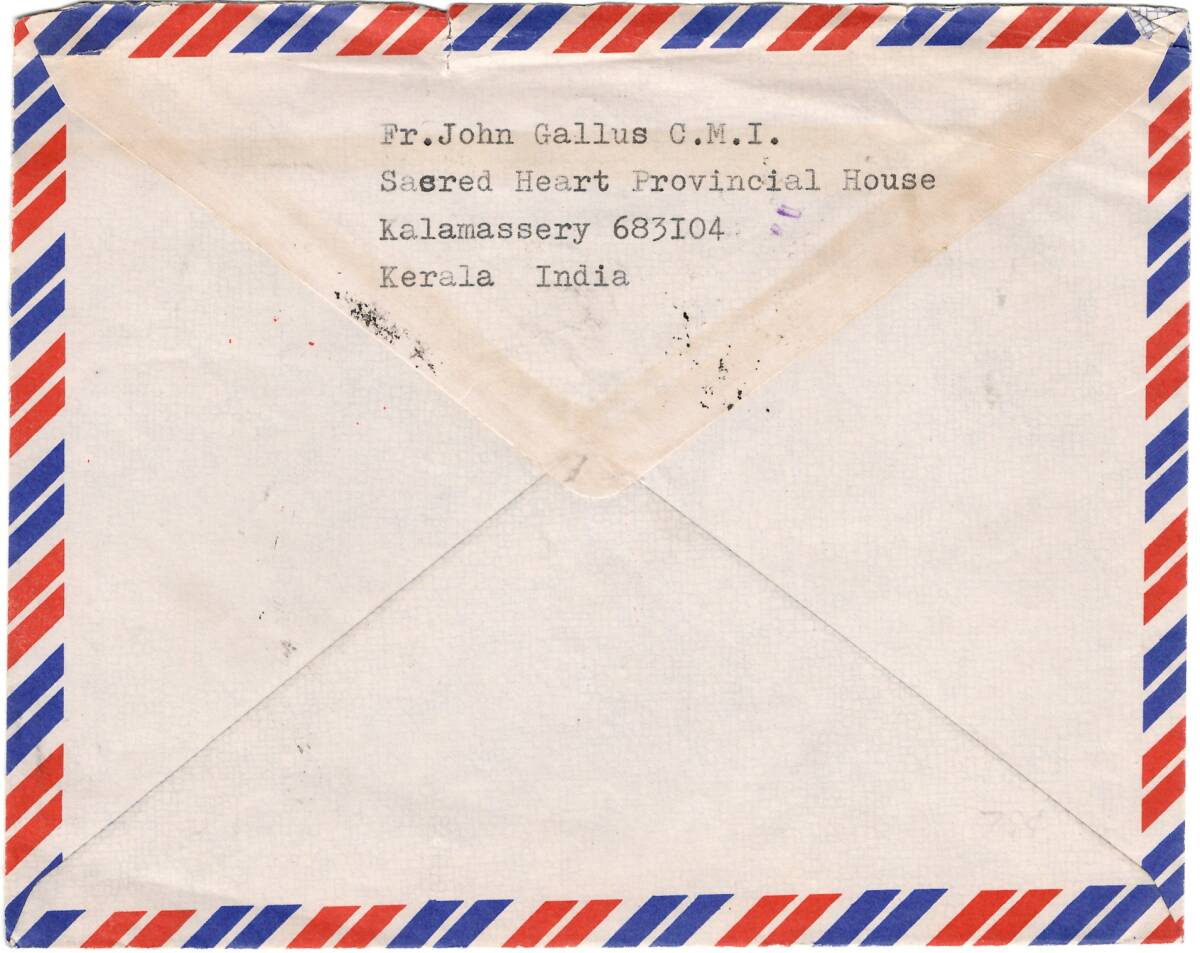 Fr.John Gallus C.M.I.
Sacred Heart Provincial House
Kalamassery 683I04
Kerala India